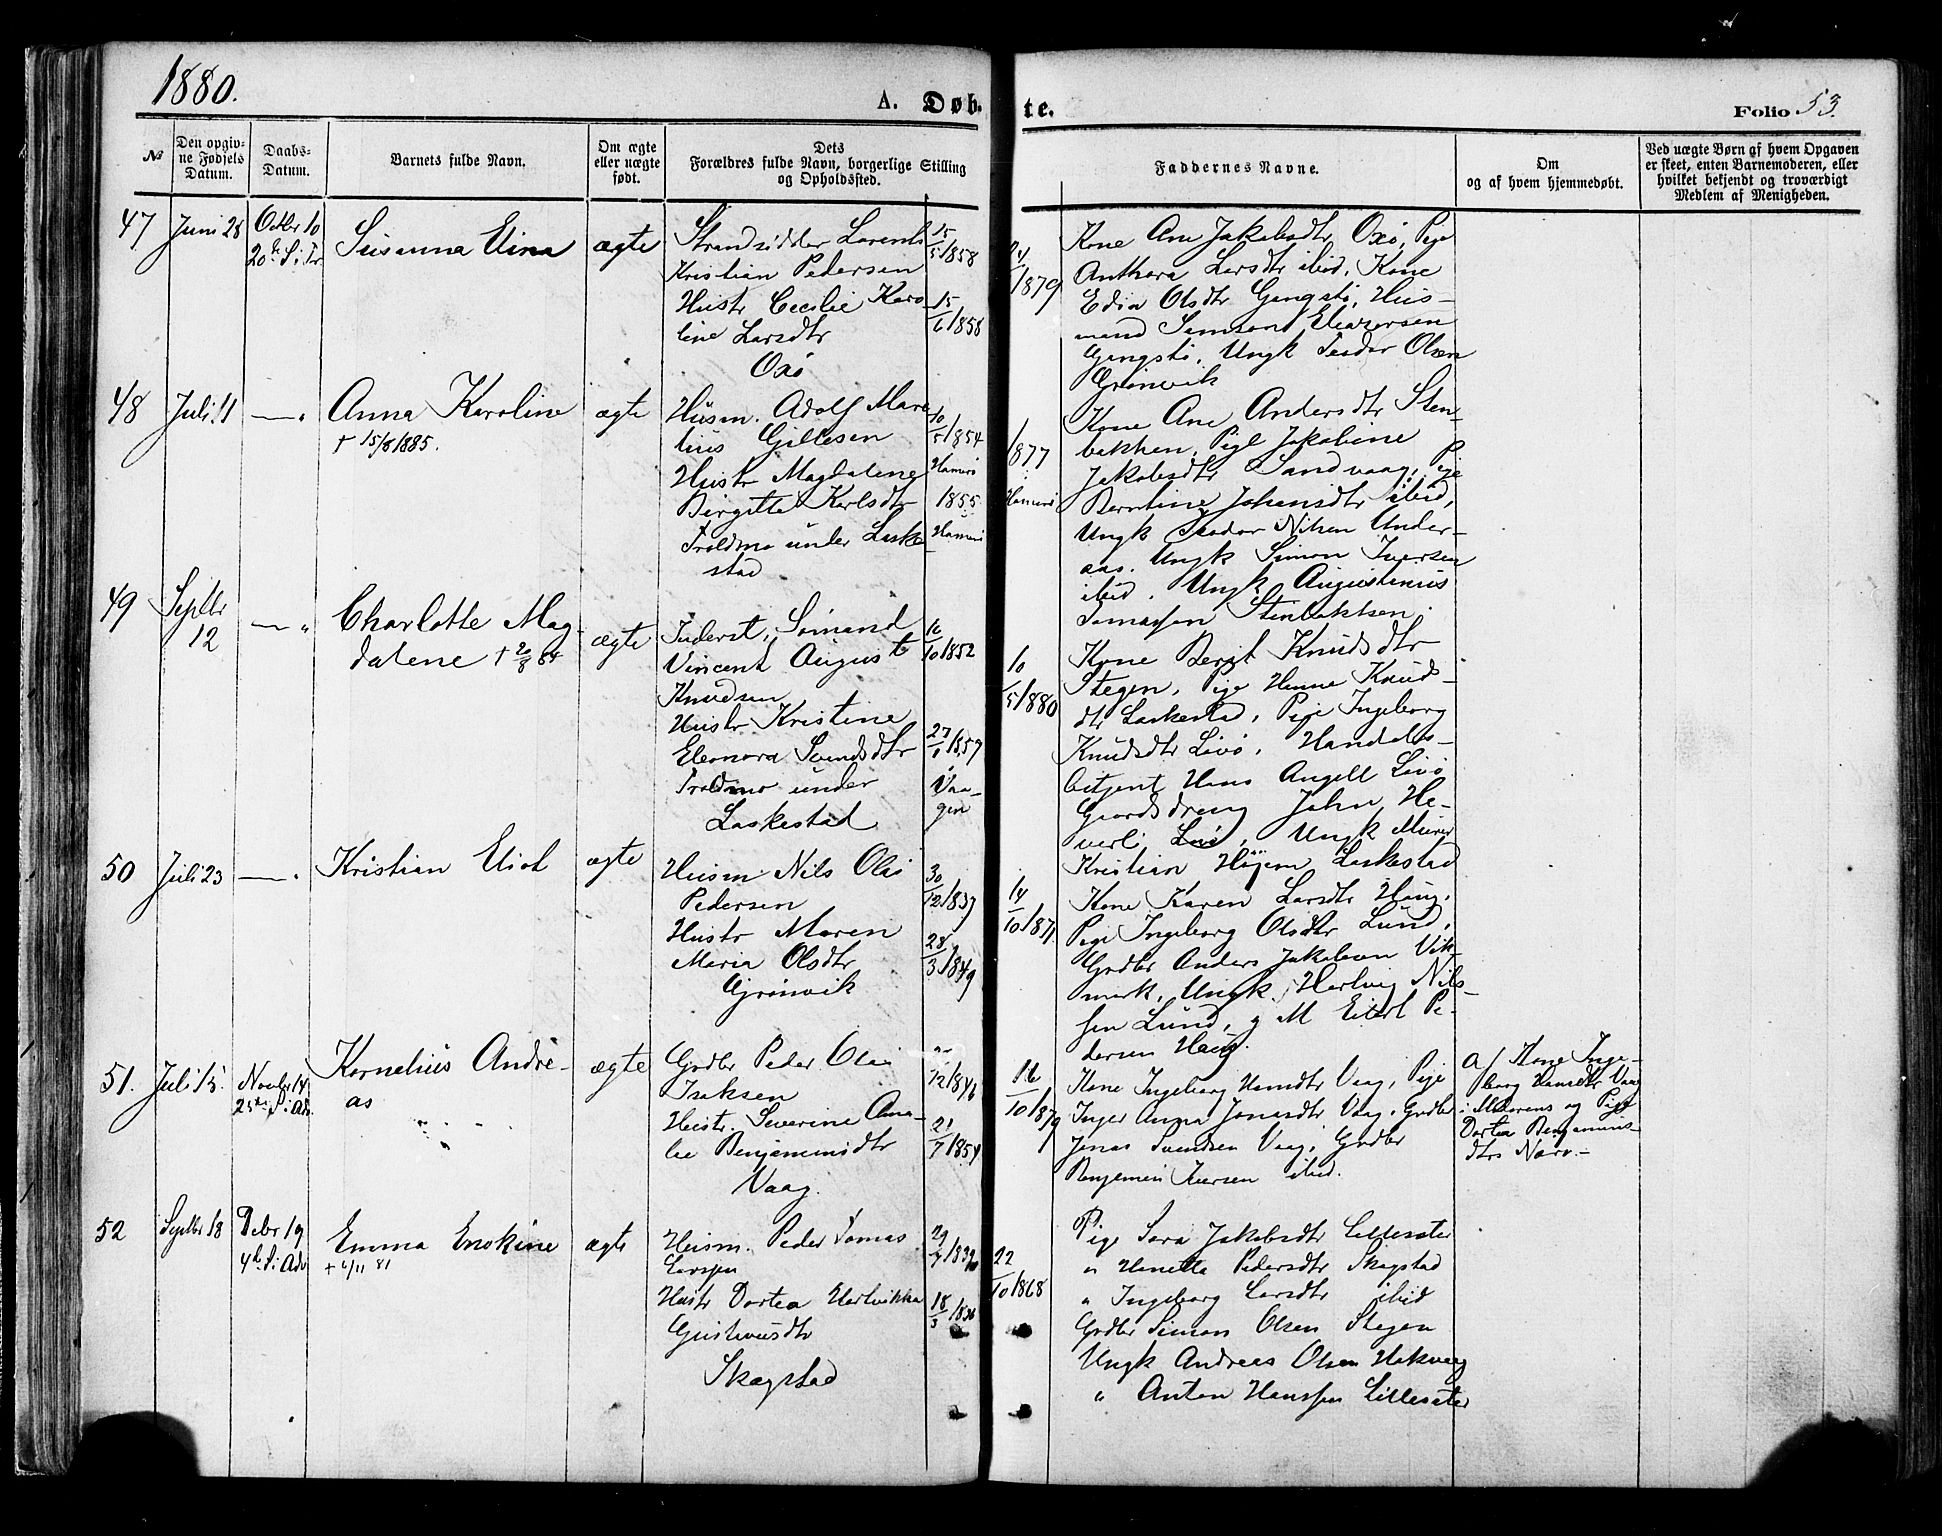 1880.
A. Døb-
te.
Folio 53.
№
Den opgiv-
ne Fødsels
Datum.
Daabs-
Datum.
Barnets fulde Navn.
Om ægte
eller uægte
født.
Dets
Forældres fulde Navn, borgerlige Stilling
og Opholdssted.
Faddernes Navne.
Om
og af hvem hjemmedøbt.
Ved uægte Børn af hvem Opgaven
er skeet, enten Barnemoderen, eller
hvilket bekjendt og troværdigt
Medlem af Menigheden.
47
Juni 28
Octbr 10
20de S. i Tr.
Susanna Elina
ægte
Strandsidder Lorents
Kristian Pedersen
Hustr Cecilie Karo-
line Larsdtr
Oxø
15/5 1858
15/6 1858
/1879
Kone Ane Jakobsdtr Oxø, Pige
Anthora Larsdtr ibid, Kone
Edia Olsdtr Gengstø, Hus-
mand Samson Eliasersen
Gengstø, Ungk Teodor Olsen
Grønvik
48
Juli 11
— "
Anna Karoline
† 15/8 1885.
ægte
Husm. Adolf Mare-
lius Gillesen
Hustr Magdalene
Birgitte Karlsdtr
Troldmo under Laske-
stad
10/5 1854
Hamerø
1855
Hamerø
1877
Hamerø
Kone Ane Andersdtr Sten-
bakken, Pige Jakobine
Jakobsdtr Sandvaag, Pige
Berntine Johansdtr ibid,
Ungk Teodor Nilsen Ander-
aas. Ungk Simon Iversen
ibid. Ungk Augustinius
Tomassen Stenbakken.
49
Septbr
12
— "
Charlotte Mag-
dalene † 20/8 84
ægte
Inderst, Sømand
Vincent August
Knudsen
Hustr Kristine
Eleonora Svendsdtr
Troldmo under
Laskestad
16/10 1852
27/1 1857
Vaa-
gen
10/5 1880
Kone Berit Knudsdtr
Stegen, Pige Hanne Knuds-
dtr Laskestad, Pige Ingeborg
Knudsdtr Løvø, Handels-
betjent Hans Angell Løvø
Gaardsdreng Johan He-
verli Løvø, Ungk Murer
Kristian Højem Laskestad
50
Juli 23
— "
Kristian Eliot
ægte
Husm Nils Olai
Pedersen
Hustr Maren
Maria Olsdtr
Grønvik
30/12 1837
28/3 1849
14/10 1871
Kone Karen Larsdtr Haug.
Pige Ingeborg Olsdtr Lund,
Grdbr Anders Jakobsen Vik-
mark, Ungk. Hartvig Nils-
sen Lund, g M Eilert Pe-
dersen Haug.
51.
Juli 15.
Novbr 14
25de S. i Adv.
Kornelius Andre-
as
ægte
Grdbr Peder Olai
Isaksen
Hustr. Severine Ama-
lie Benjaminsdtr
Vaag.
/12 1846
21/7 1854
16/10 1879
Kone Ingeborg Hansdtr Vaag, Pige
Inger Anna Jonasdtr Vaag, Grdbr
Jonas Svendsen Vaag, Grdbr
Benjamin Iversen ibid.
Af Kone Inge-
borg Hansdtr Vaag
i Morens og Pige
Dortea Benjamins-
dtrs Nærv.—
52
Septbr 18
Debr 19
4de S. i Adv
Emma Enokine
† 6/11 81
ægte
Husm. Peder Tomas
Larssen
Hustr Dortea Hartvikka
Gustavusdtr
Skagstad
18/3 1836
22/10 1868
Pige Sara Jakobsdtr Lillesæter
" Hanetta Pedersdtr Skagstad
" Ingeborg Larsdtr ibid
Grdbr Simon Olsen Stegen
Ungk Andreas Olsen Hakvaag
" Anton Hanssen Lillesæter